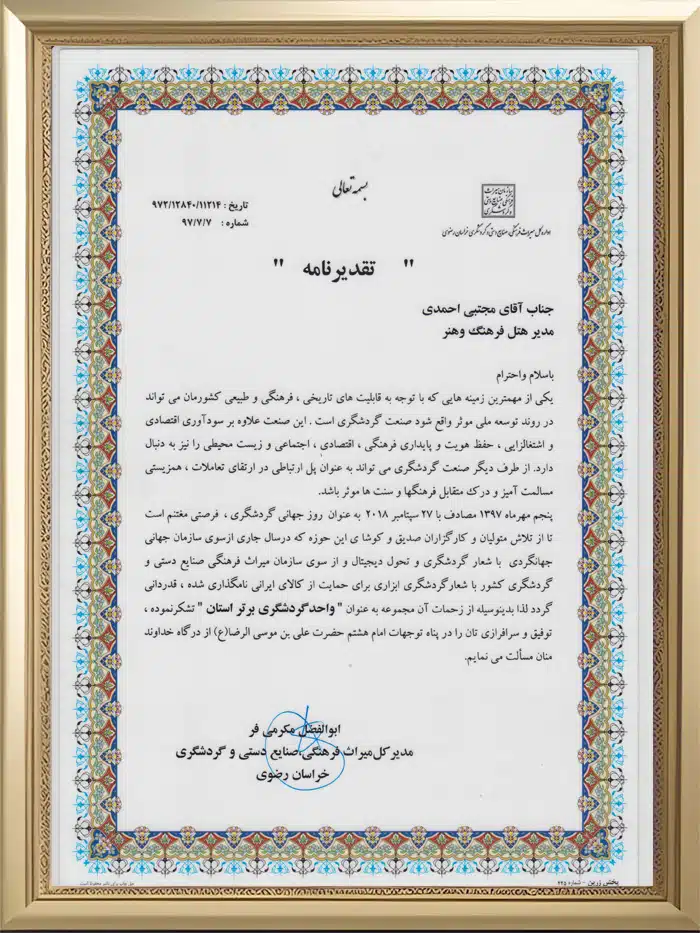 بسمه تعالی
سازمان میراث فرهنگی، صنایع دستی و گردشگری
اداره کل میراث فرهنگی، صنایع دستی و گردشگری خراسان رضوی
تاریخ : ۹۷۲/۱۲۸۴۰/۱۱۲۱۴
شماره : ۹۷/۷/۷
" تقدیرنامه "
جناب آقای مجتبی احمدی
مدیر هتل فرهنگ وهنر
باسلام واحترام
یکی از مهمترین زمینه هایی که با توجه به قابلیت های تاریخی ، فرهنگی و طبیعی کشورمان می تواند
در روند توسعه ملی موثر واقع شود صنعت گردشگری است . این صنعت علاوه بر سودآوری اقتصادی
و اشتغالزایی ، حفظ هویت و پایداری فرهنگی ، اقتصادی ، اجتماعی و زیست محیطی را نیز به دنبال
دارد. از طرف دیگر صنعت گردشگری می تواند به عنوان پل ارتباطی در ارتقای تعاملات ، همزیستی
مسالمت آمیز و درک متقابل فرهنگها و سنت ها موثر باشد.
پنجم مهرماه ۱۳۹۷ مصادف با ۲۷ سپتامبر ۲۰۱۸ به عنوان روز جهانی گردشگری ، فرصتی مغتنم است
تا از تلاش متولیان و کارگزاران صدیق و کوشا ی این حوزه که درسال جاری ازسوی سازمان جهانی
جهانگردی با شعار گردشگری و تحول دیجیتال و از سوی سازمان میراث فرهنگی صنایع دستی و
گردشگری کشور با شعارگردشگری ابزاری برای حمایت از کالای ایرانی نامگذاری شده ، قدردانی
گردد لذا بدینوسیله از زحمات آن مجموعه به عنوان " واحدگردشگری برتر استان " تشکرنموده ،
توفیق و سرافرازی تان را در پناه توجهات امام هشتم حضرت علی بن موسی الرضا(ع) از درگاه خداوند
منان مسألت می نمایم.
ابوالفضل مکرمی فر
مدیرکل میراث فرهنگی،صنایع دستی و گردشگری
خراسان رضوی
پخش زرین - شماره ۲۲۵